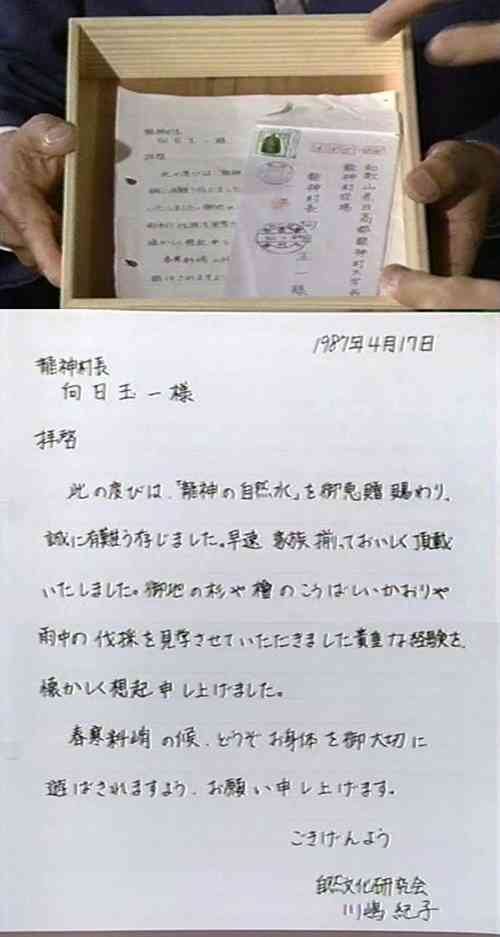 龍神村長
拝啓
此の度びは、「龍神
和歌山県日高郡龍神村大字
龍神村役場
龍神村長
一様
1987年4月17日
龍神村長
向日玉一様
拝啓
此の度びは、「龍神の自然水」を御恵贈賜わり、
誠に有難う存じました。早速家族揃っておいしく頂戴
いたしました。御地の杉や檜のこうばしいかおりや
雨中の伐採を見学させていただきました貴重な経験を、
懐かしく想起申し上げました。
春寒料峭の候、どうぞお身体を御大切に
遊ばされますよう、お願い申し上げます。
ごきげんよう
自然文化研究会
川嶋紀子